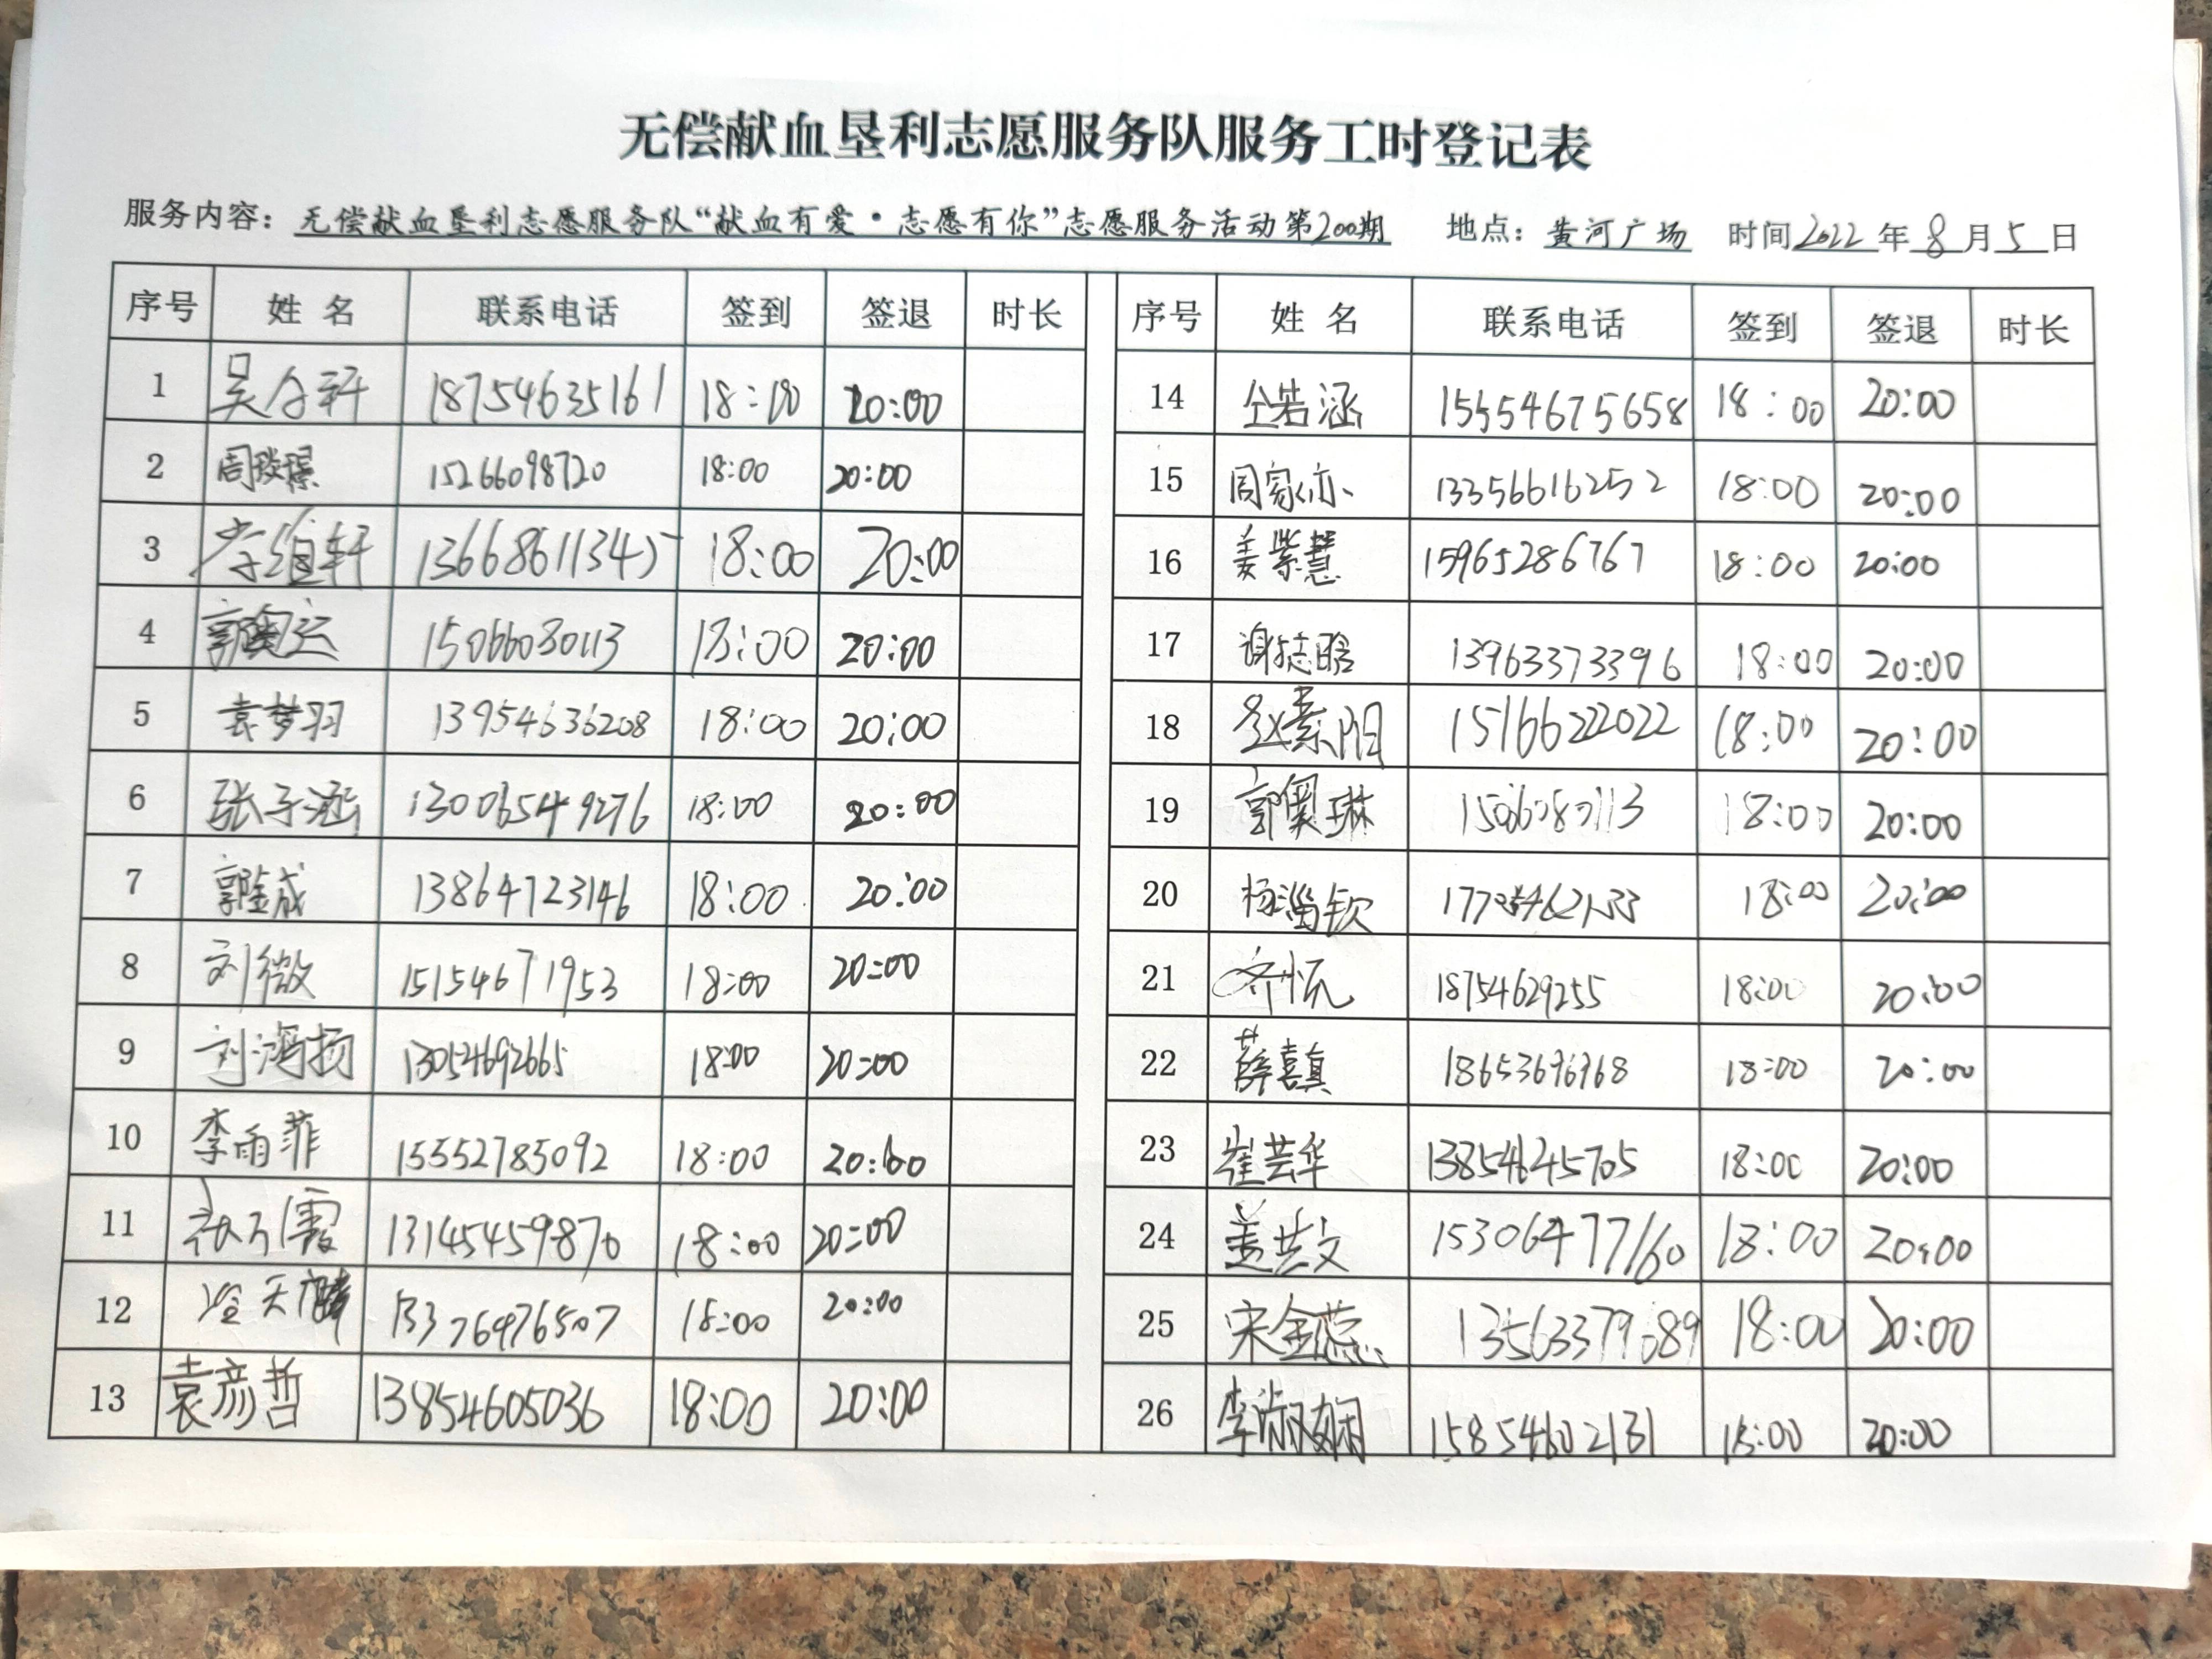 无偿献血垦利志愿服务队服务工时登记表
服务内容：无偿献血垦利志愿服务队“献血有爱·志愿有你”志愿服务活动第200期 地点：黄河广场 时间2022年8月5日
序号 姓名 联系电话 签到 签退 时长 序号 姓名 联系电话 签到 签退 时长
1 吴 轩 18754635161 18:00 20:00 14 仝若涵 15554675658 18:00 20:00
2 周 15266098720 18:00 20:00 15 周家亦 13356616252 18:00 20:00
3 李维轩 13668611345 18:00 20:00 16 姜紫慧 15965286767 18:00 20:00
4 郭 15066080113 18:00 20:00 17 谢志晗 13963373396 18:00 20:00
5 袁梦羽 13954636208 18:00 20:00 18 赵素阳 15166222022 18:00 20:00
6 张子涵 13006549276 18:00 20:00 19 郭奥琳 15066080113 18:00 20:00
7 郭金成 13864723146 18:00 20:00 20 杨淄钦 18:00 20:00
8 刘微 15154671953 18:00 20:00 21 齐悦 18754629255 18:00 20:00
9 刘鸿扬 13054692665 18:00 20:00 22 薛喜真 18653696968 18:00 20:00
10 李雨菲 15552785092 18:00 20:00 23 崔芸华 13854645705 18:00 20:00
11 13145459870 18:00 20:00 24 姜共文 15306477160 18:00 20:00
12 天麟 13376476507 18:00 20:00 25 宋金蕊 13563379689 18:00 20:00
13 袁彦哲 13854605036 18:00 20:00 26 李淑娴 15854602131 18:00 20:00